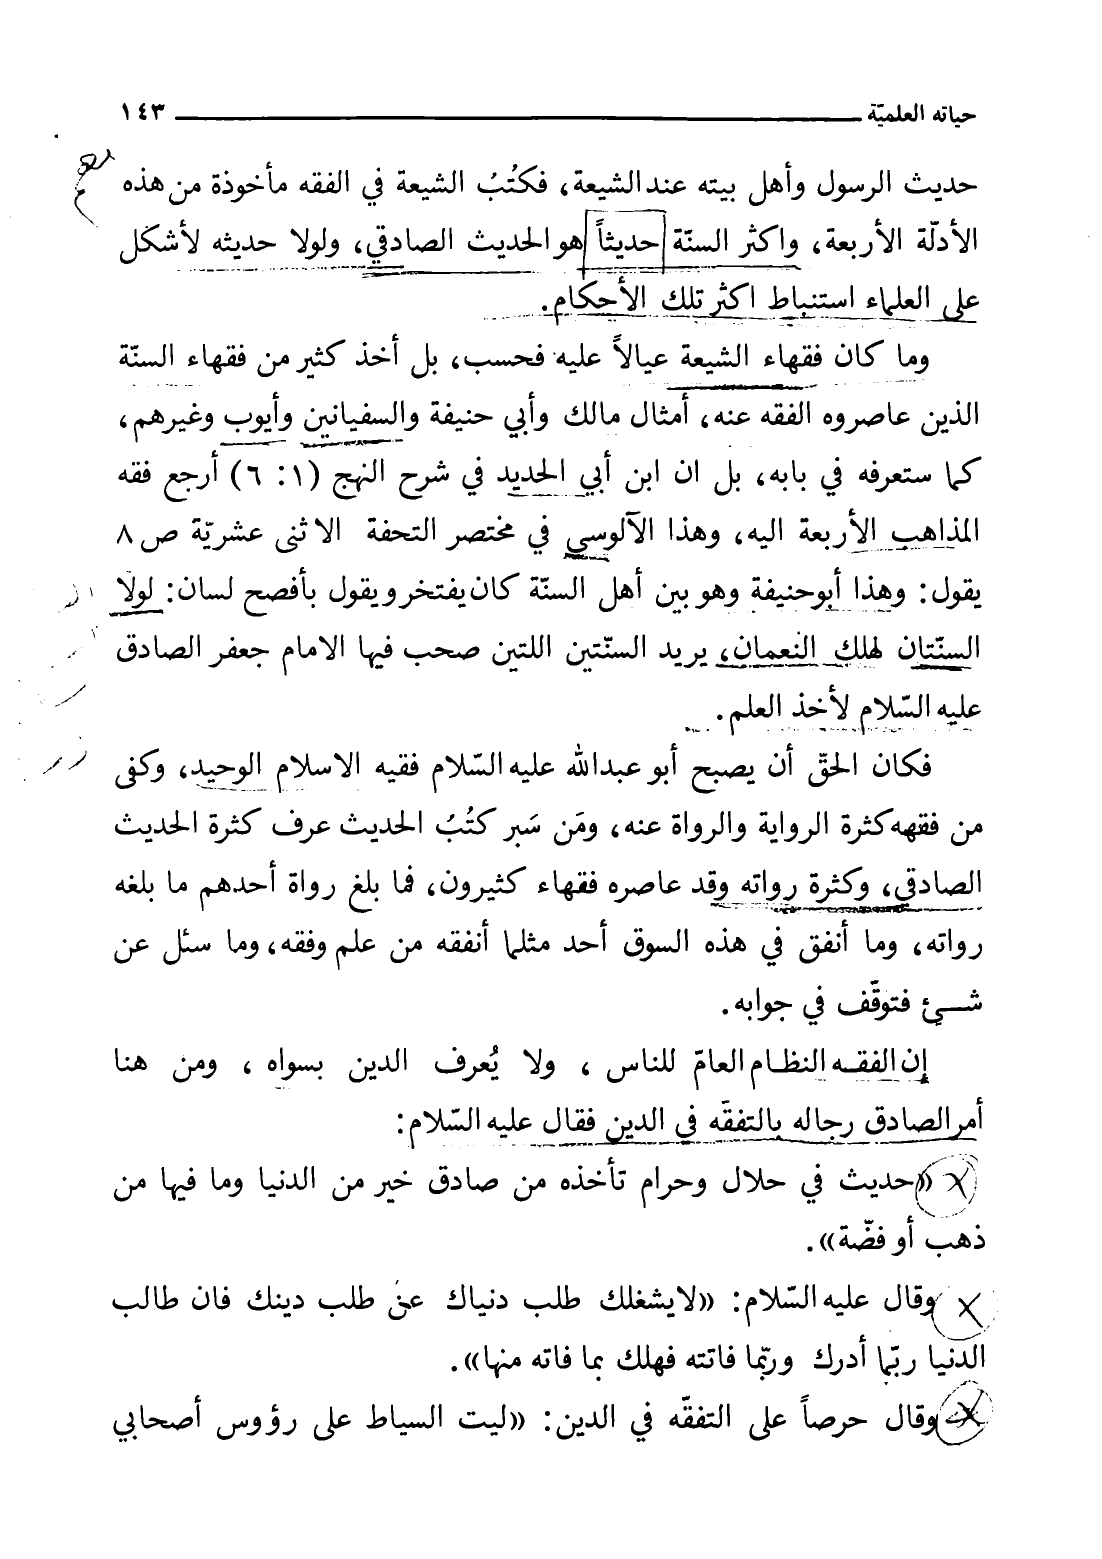 حياته العلميّة ١٤٣
حديث الرسول وأهل بيته عند الشيعة، فكتُبُ الشيعة في الفقه مأخوذة من هذه
الأدلّة الأربعة، واكثر السنّة حديثاً هو الحديث الصادقي، ولولا حديثه لأشكل
على العلماء استنباط اكثر تلك الأحكام.
وما كان فقهاء الشيعة عيالاً عليه فحسب، بل أخذ كثير من فقهاء السنّة
الذين عاصروه الفقه عنه، أمثال مالك وأبي حنيفة والسفيانين وأيوب وغيرهم،
كما ستعرفه في بابه، بل ان ابن أبي الحديد في شرح النهج (١: ٦) أرجع فقه
المذاهب الأربعة اليه، وهذا الآلوسي في مختصر التحفة الاثنى عشريّة ص ٨
يقول: وهذا أبوحنيفة وهو بين أهل السنّة كان يفتخر ويقول بأفصح لسان: لولا
السنّتان لهلك النعمان، يريد السنّتين اللتين صحب فيها الامام جعفر الصادق
عليه السّلام لأخذ العلم.
فكان الحقّ أن يصبح أبو عبدالله عليه السّلام فقيه الاسلام الوحيد، وكفى
من فقهه كثرة الرواية والرواة عنه، ومَن سَبر كتُبُ الحديث عرف كثرة الحديث
الصادقي، وكثرة رواته وقد عاصره فقهاء كثيرون، فما بلغ رواة أحدهم ما بلغه
رواته، وما أنفق في هذه السوق أحد مثلما أنفقه من علم وفقه، وما سئل عن
شـيئ فتوقّف في جوابه.
إن الفقـه النظـام العامّ للناس ، ولا يُعرف الدين بسواه ، ومن هنا
أمر الصادق رجاله بالتفقّه في الدين فقال عليه السّلام:
«حديث في حلال وحرام تأخذه من صادق خير من الدنيا وما فيها من
ذهب أو فضّة».
وقال عليه السّلام: «لايشغلك طلب دنياك عن طلب دينك فان طالب
الدنيا ربّما أدرك وربّما فاتته فهلك بما فاته منها».
وقال حرصاً على التفقّه في الدين: «ليت السياط على رؤوس أصحابي